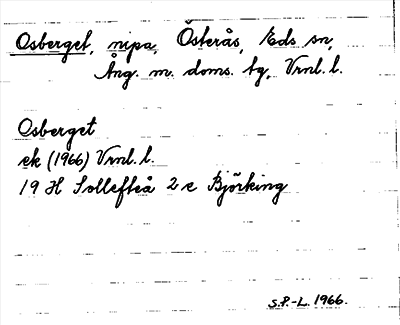 Osberget, nipa, Österås, Eds sn,
Ång. m. doms. tg, Vrnl. l.
Osberget
ek (1966) Vrnl. l.
19 H Sollefteå 2 c Björking
S.P.-L. 1966.